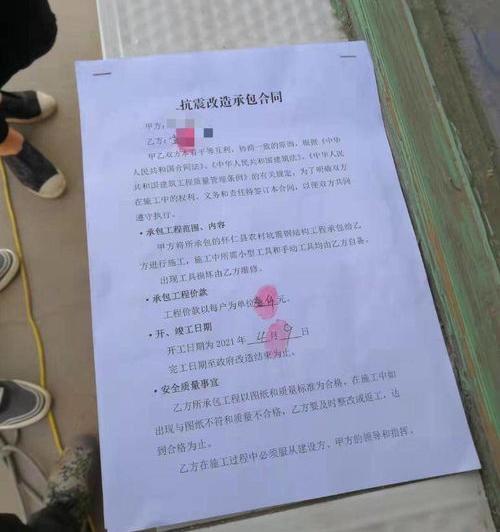 抗震改造承包合同
甲方：
乙方：
甲乙双方本着平等互利，协商一致的原则，根据《中华
人民共和国合同法》、《中华人民共和国建筑法》、《中华人民
共和国建筑工程质量管理条例》的有关规定，为了明确双方
在施工中的权利、义务和责任特签订本合同，以便双方共同
遵守执行。
· 承包工程范围、内容
甲方将所承包的怀仁县农村抗震钢结构工程承包给乙
方进行施工，施工中所需小型工具和手动工具均由乙方自备。
出现工具损坏由乙方维修。
· 承包工程价款
工程价款以每户为单位 元。
· 开、竣工日期
开工日期为 2021 年 4 月 9 日
完工日期至政府改造结束为止。
· 安全质量事宜
乙方所承包工程以图纸和质量标准为合格，在施工中如
出现与图纸不符和质量不合格，乙方要及时整改或返工，达
到合格为止。
乙方在施工过程中必须服从建设方、甲方的领导和指挥。